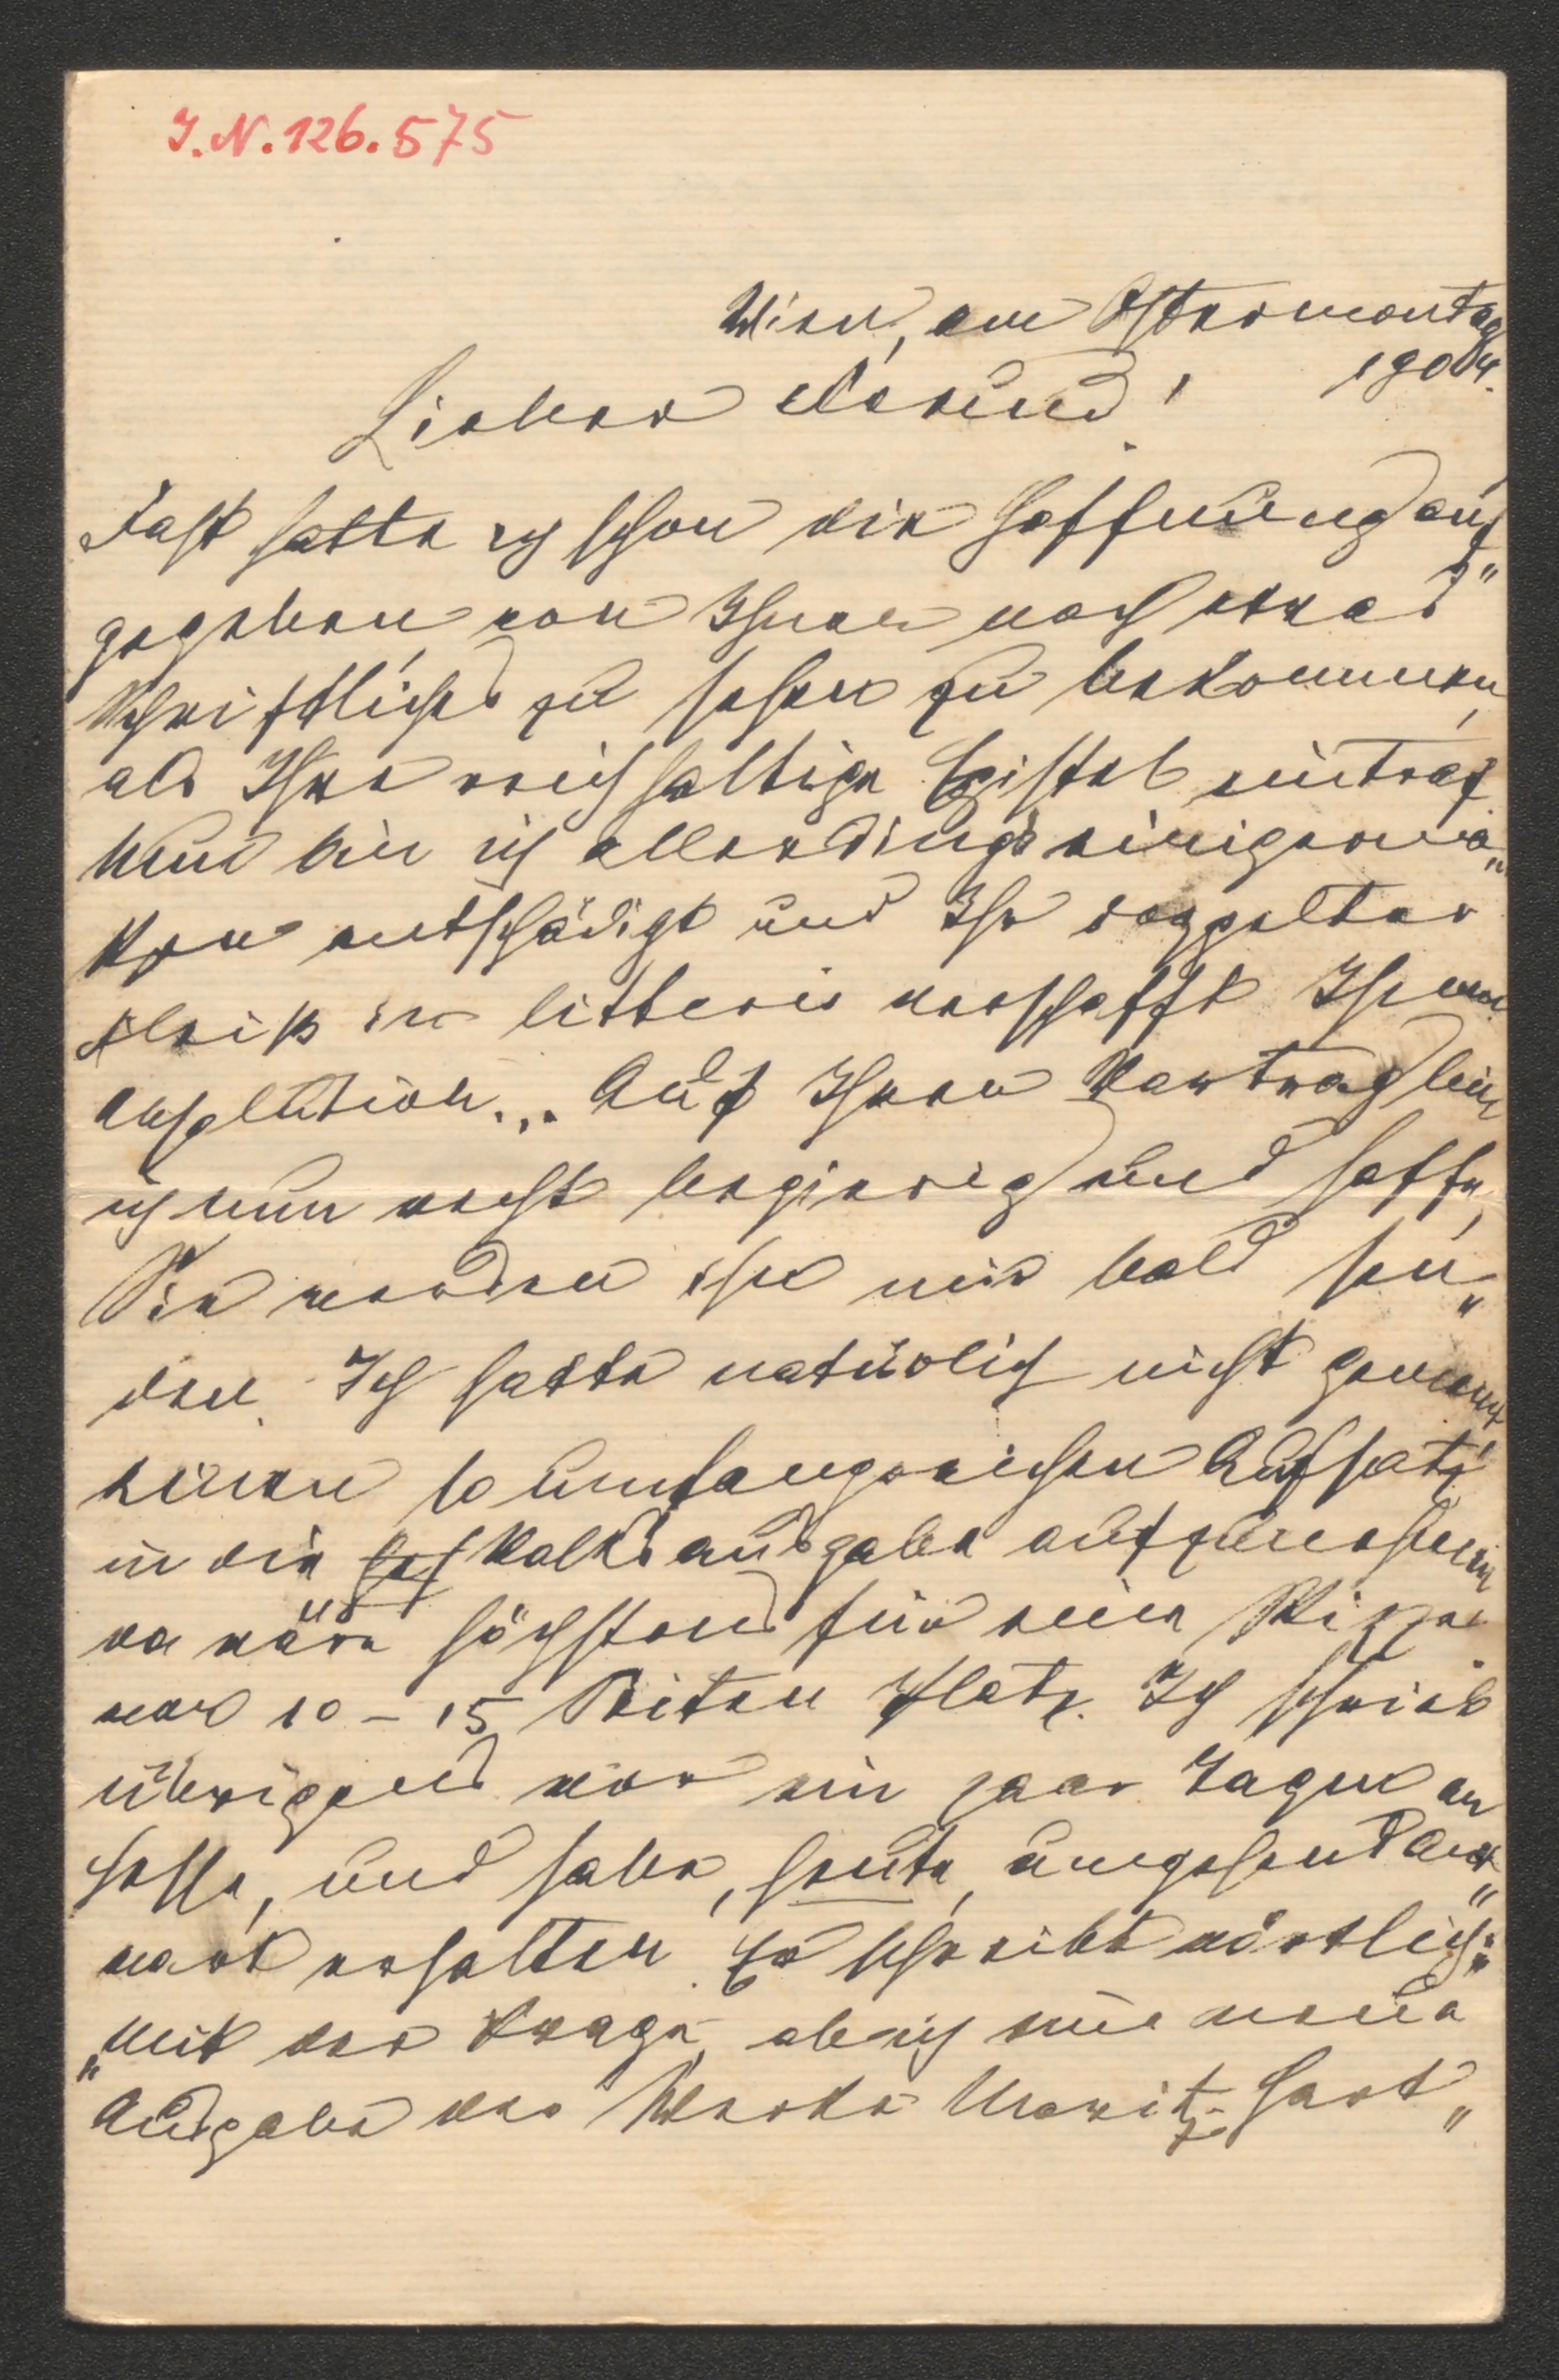 I.N. 126.575
Wien, am Ostermontag
1904.
Lieber Freund!
Fast hatte ich schon die Hoffnung auf
gegeben, von Ihnen noch etwas
Schriftliches zu sehen zu bekommen,
als Ihre reichhaltige Epistel eintraf.
Nun bin ich allerdings einigerma„
ßen entschädigt und Ihr doppelter
Fleiß in litteris verschafft Ihnen
Absolution... Auf Ihren Vortrag bin
ich nun recht begierig und hoffe,
Sie werden ihn mir bald sen„
den. Ich hatte natürlich nicht gemeint
einen so umfangreichen Aufsatz
in die Volksausgabe aufzunehmen,
da wäre höchstens für eine Skizze
von 10 – 15 Seiten Platz. Ich schrieb
übrigens vor ein paar Tagen an
Hesse, und habe, heute, umgehend Ant„
wort erhalten. Er schreibt wörtlich:
„Mit der Frage, ob ich eine neue
Ausgabe der Werke Moritz Hart„